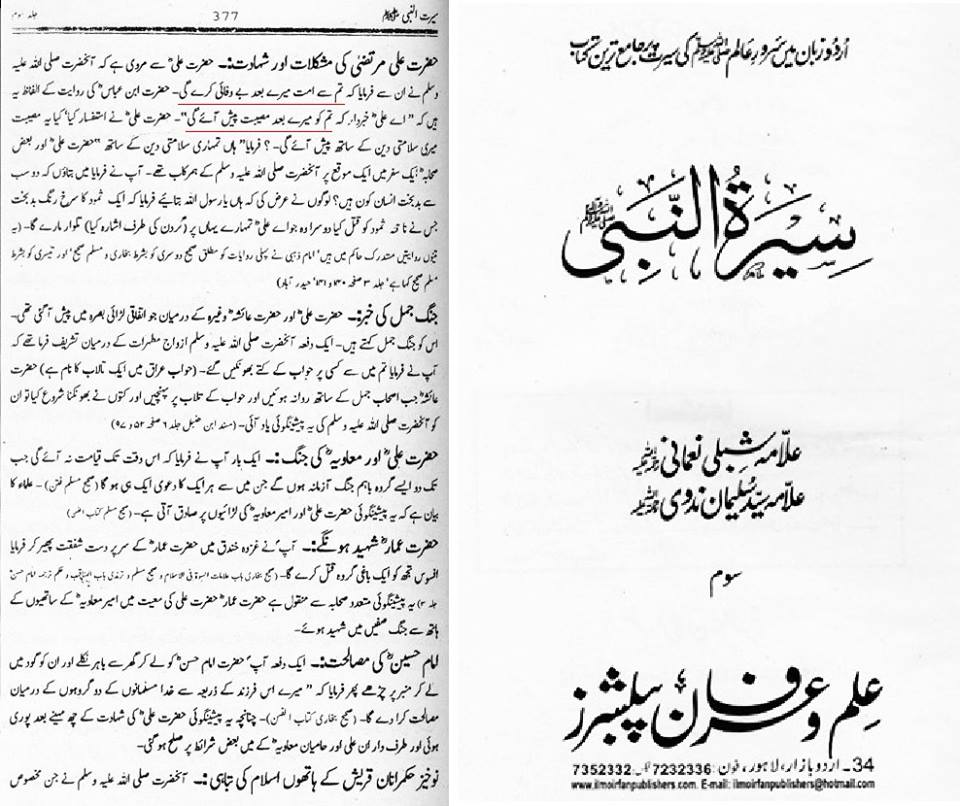 سیرت النبی ﷺ 377 جلد سوم
حضرت علی مرتضیٰؓ کی مشکلات اور شہادت:۔ حضرت علیؓ سے مروی ہے کہ آنحضرت صلی اللہ علیہ
وسلم نے ان سے فرمایا کہ تم سے امت میرے بعد بے وفائی کرے گی۔ حضرت ابن عباسؓ کی روایت کے الفاظ یہ
ہیں کہ "اے علیؓ خبردار کہ تم کو میرے بعد مصیبت پیش آئے گی"۔ حضرت علیؓ نے استفسار کیا' کیا یہ مصیبت
میری سلامتی دین کے ساتھ پیش آئے گی۔ ؟ فرمایا" ہاں تمہاری سلامتی دین کے ساتھ "حضرت علیؓ اور بعض
صحابہؓ ایک سفر میں ایک موقع پر آنحضرت صلی اللہ علیہ وسلم کے ہمرکاب تھے۔ آپ نے فرمایا میں بتاؤں کہ دو سب
سے بدبخت انسان کون ہیں؟ لوگوں نے عرض کی کہ ہاں یارسول اللہ بتائیے فرمایا کہ ایک ثمود کا سرخ رنگ بدبخت
جس نے ناقہ ثمود کو قتل کیا دوسرا وہ جو اے علیؓ تمہارے یہاں پر (گردن کی طرف اشارہ کیا) تلوار مارے گا۔ (یہ
تینوں روایتیں مستدرک حاکم میں ہیں' امام ذہبی نے پہلی روایات کو مطلق صحیح دوسری کو بشرط بخاری و مسلم صحیح' اور تیسری کو بشرط
مسلم صحیح کہا ہے' جلد ۳ صفحہ ۱۴۰ و ۱۴۱' حیدر آباد)
جنگ جمل کی خبر:۔ حضرت علیؓ اور حضرت عائشہؓ وغیرہ کے درمیان جو اتفاقی لڑائی بصرہ میں پیش آگئی تھی۔
اس کو جنگ جمل کہتے ہیں۔ ایک دفعہ آنحضرت صلی اللہ علیہ وسلم ازواج مطہرات کے درمیان تشریف فرما تھے کہ
آپ نے فرمایا تم میں سے کسی پر حواب کے کتے بھونکیں گے۔ (حواب عراق میں ایک تالاب کا نام ہے) حضرت
عائشہؓ جب اصحاب جمل کے ساتھ روانہ ہوئیں اور حواب کے تالاب پر پہنچیں اور کتوں نے بھونکنا شروع کیا تو ان
کو آنحضرت صلی اللہ علیہ وسلم کی یہ پیشینگوئی یاد آئی۔ (مسند ابن حنبل جلد ۶ صفحہ ۵۲ و ۹۷)
حضرت علیؓ اور معاویہؓ کی جنگ:۔ ایک بار آپ نے فرمایا کہ اس وقت تک قیامت نہ آئے گی جب
تک دو ایسے گروہ باہم جنگ آزما نہ ہوں گے جن میں سے ہر ایک کا دعویٰ ایک ہی ہو گا (صحیح مسلم فتن)۔ علماء کا
بیان ہے کہ یہ پیشینگوئی حضرت علیؓ اور امیر معاویہؓ کی لڑائیوں پر صادق آتی ہے۔ (صحیح مسلم کتاب الفتن)
حضرت عمارؓ شہید ہونگے:۔ آپؐ نے غزوہ خندق میں حضرت عمارؓ کے سر پر دست شفقت پھیر کر فرمایا
افسوس تجھ کو ایک باغی گروہ قتل کرے گا۔ (صحیح بخاری باب علامات النبوۃ فی الاسلام و صحیح مسلم و ترمذی باب المناقب و حاکم ترجمہ امام حسنؓ
جلد ۳) یہ پیشینگوئی متعدد صحابہ سے منقول ہے حضرت عمارؓ حضرت علی کی معیت میں امیر معاویہؓ کے ساتھیوں کے
ہاتھ سے جنگ صفین میں شہید ہوئے۔
امام حسینؓ کی مصالحت:۔ ایک دفعہ آپؐ حضرت امام حسنؓ کو لے کر گھر سے باہر نکلے اور ان کو گود میں
لے کر منبر پر چڑھے پھر فرمایا کہ "میرے اس فرزند کے ذریعہ سے خدا مسلمانوں کے دو گروہوں کے درمیان
مصالحت کرا دے گا۔ (صحیح بخاری کتاب الفتن)۔ چنانچہ یہ پیشینگوئی حضرت علیؓ کی شہادت کے چھ مہینے بعد پوری
ہوئی اور طرف داران علی اور حامیان معاویہؓ کے میں بعض شرائط پر صلح ہو گئی۔
نوخیز حکمرانان قریش کے ہاتھوں اسلام کی تباہی:۔ آنحضرت صلی اللہ علیہ وسلم نے جن مخصوص
اردو زبان میں سرور عالم ﷺ کی سیرت پر جامع ترین کتاب
سیرۃ النبی ﷺ
علامہ شبلی نعمانی رحمۃ اللہ علیہ
علامہ سید سلیمان ندوی رحمۃ اللہ علیہ
سوم
علم و عرفان پبلشرز
34۔ اردو بازار، لاہور، فون: 7232336 فیکس: 7352332
www.ilmoirfanpublishers.com. E-mail: ilmoirfanpublishers@hotmail.com